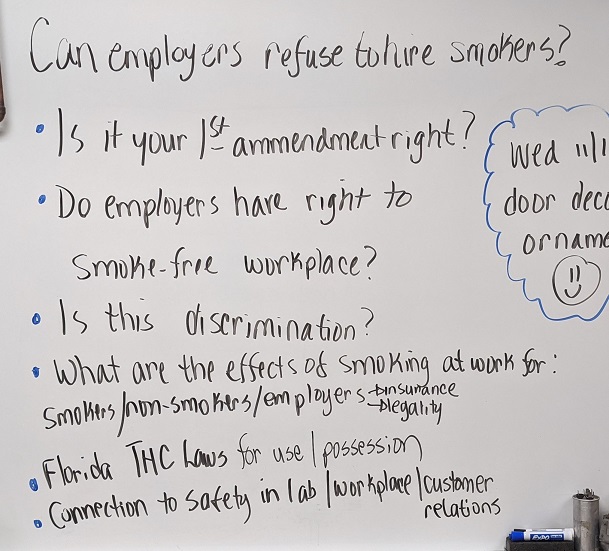 Can employers refuse to hire smokers?
• Is it your 1st ammendment right?
• Do employers have right to
smoke-free workplace?
• Is this discrimination?
• What are the effects of smoking at work for:
Smokers/non-smokers/employers→insurance
→legality
• Florida THC Laws for use/possession
• Connection to safety in lab/workplace/customer
relations
Wed 11/1
door deco
orname
EXPO